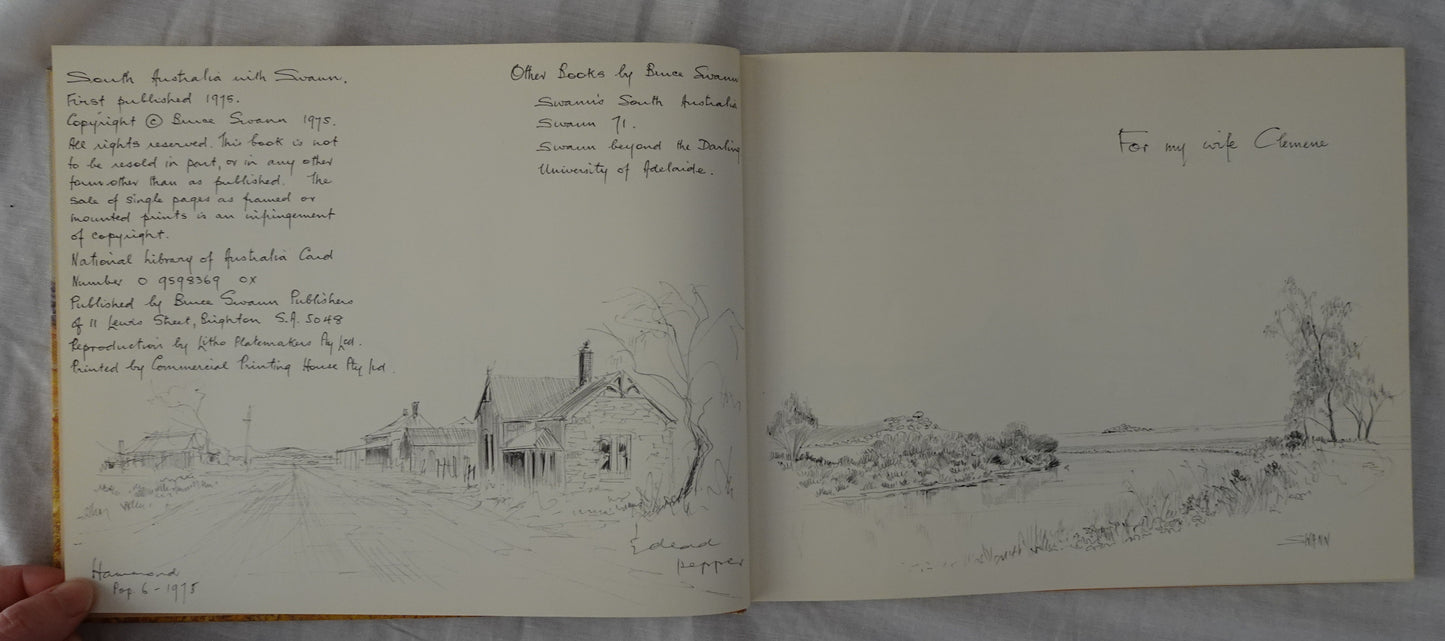 South Australia with Swann.
First published 1975.
Copyright © Bruce Swann 1975.
All rights reserved. This book is not
to be resold in part, or in any other
form other than as published. The
sale of single pages as framed or
mounted prints is an infringement
of copyright.
National Library of Australia Card
Number 0 9598369 0X
Published by Bruce Swann Publishers
of 11 Lewis Street, Brighton S.A. 5048
Reproduction by Litho Platemakers Pty Ltd.
Printed by Commercial Printing House Pty Ltd.
Other Books by Bruce Swann
Swann's South Australia
Swann 71.
Swann beyond the Darling
University of Adelaide.
dead
pepper
Hammond
Pop. 6 - 1975
For my wife Clemene
SWANN